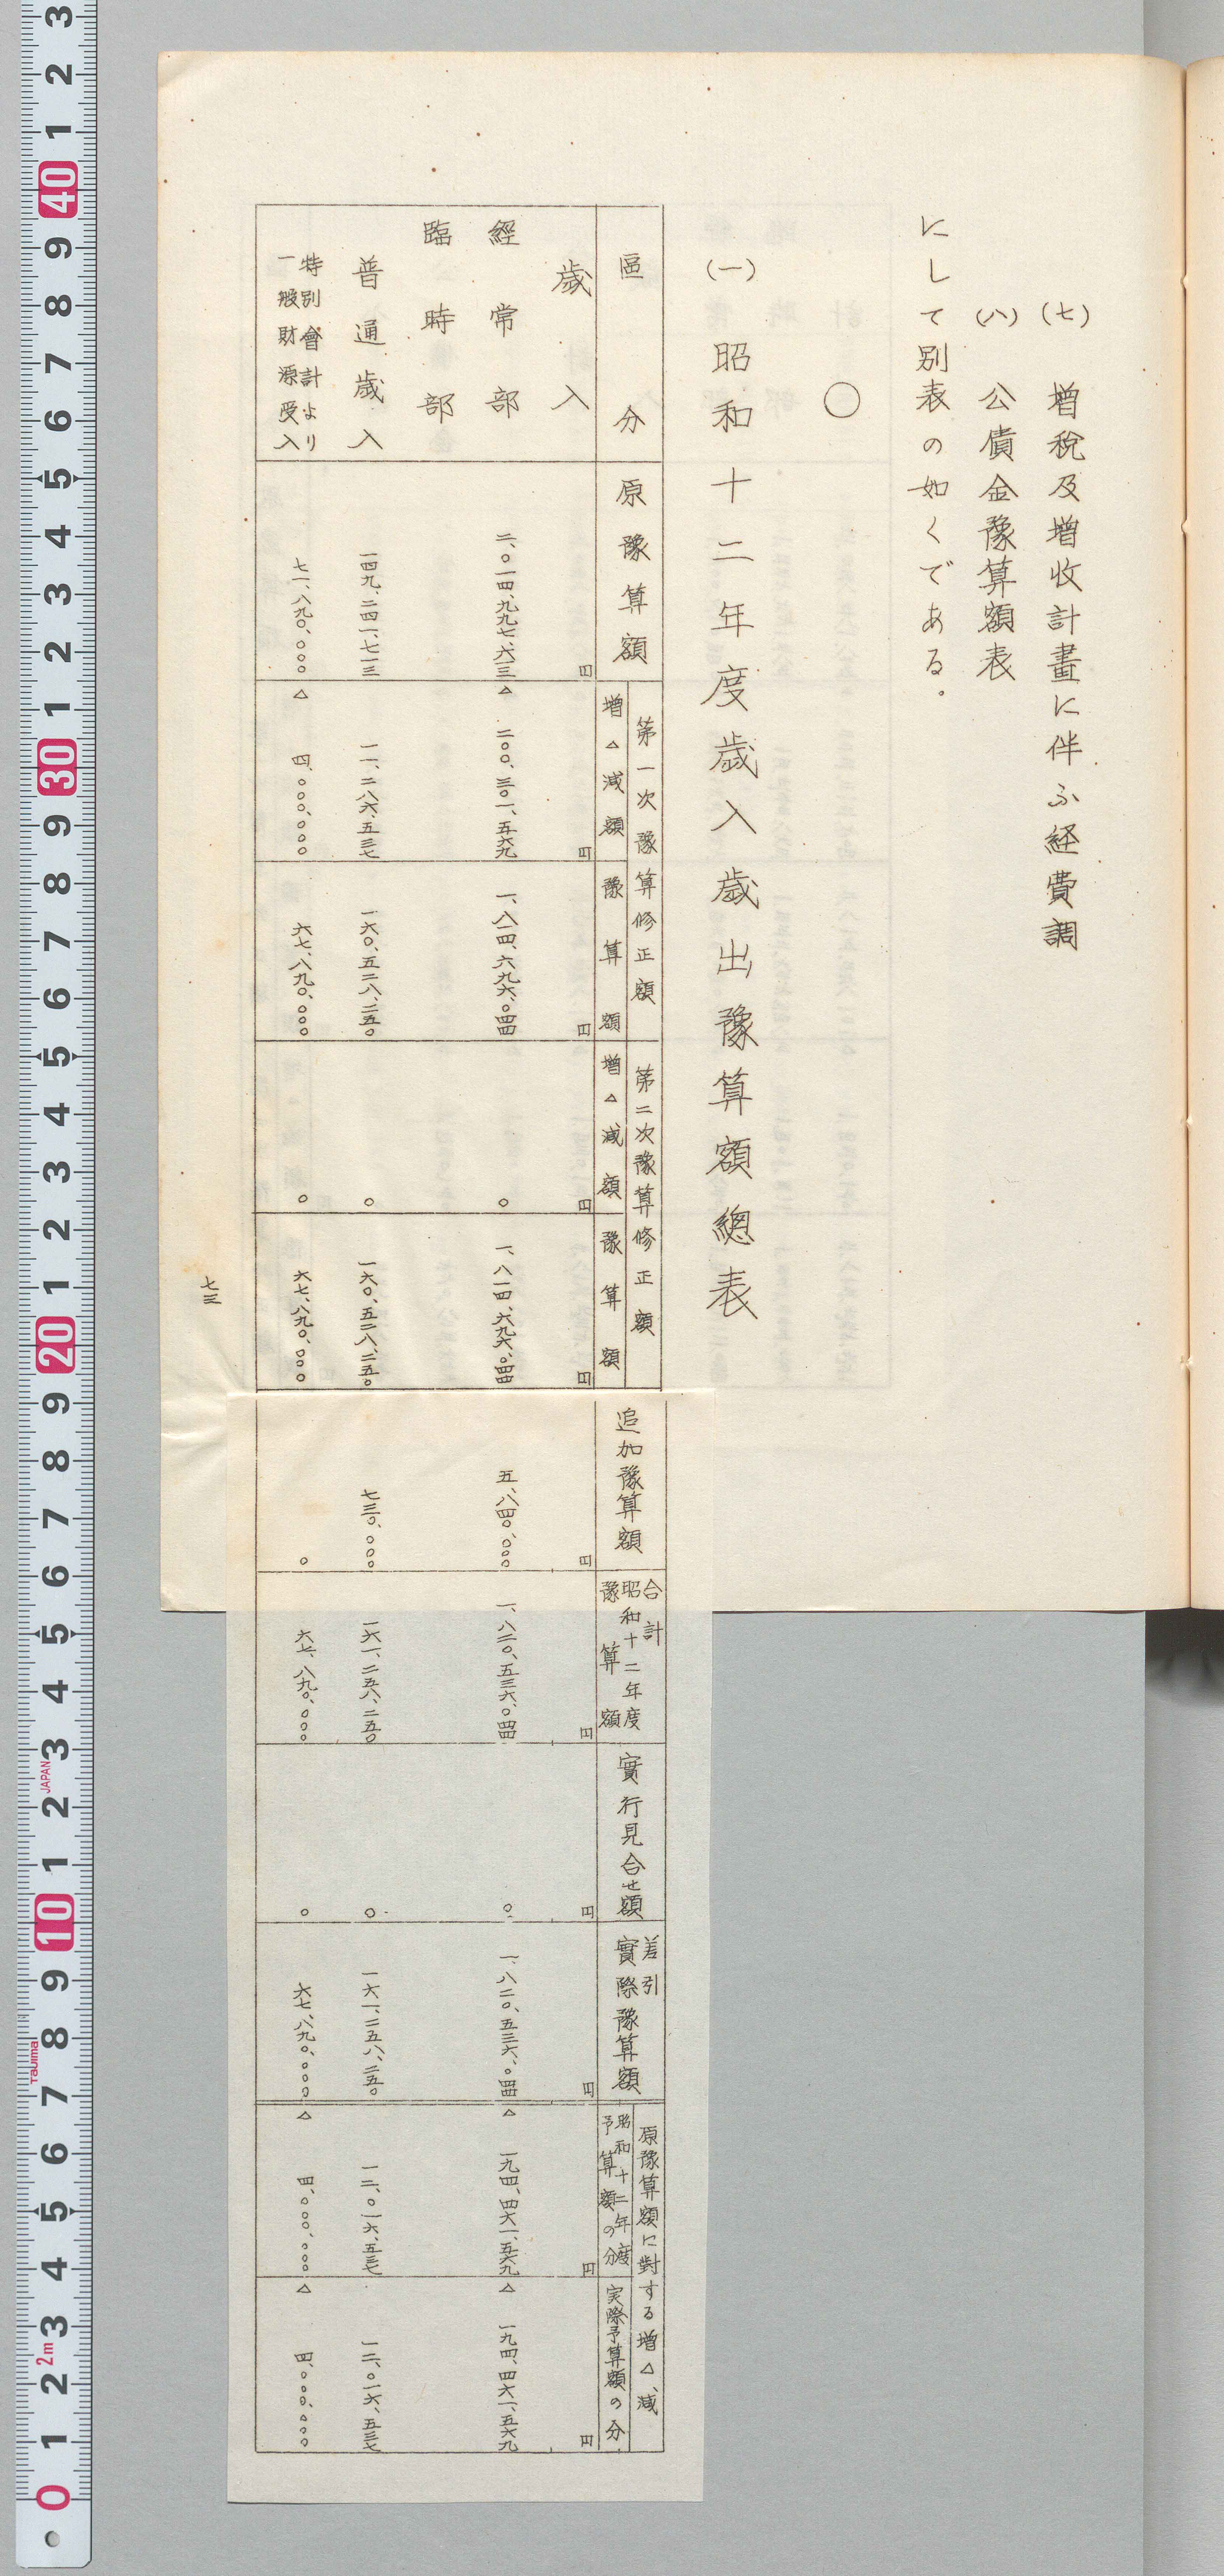 (七) 増税及増收計畫に伴ふ経費調
(八) 公債金豫算額表
にして別表の如くである。
○
(一) 昭和十二年度歳入歳出豫算額總表
區分
原豫算額
第一次豫算修正額
増△減額
豫算額
第二次豫算修正額
増△減額
豫算額
追加豫算額
合計
昭和十二年度
豫算額
實行見合せ額
差引
實際豫算額
原豫算額に對する増△減
昭和十二年度
予算額の分
実際予算額の分
歳入
円 円 円 円 円 円 円 円 円 円 円
經常部 二、〇一四、九九七、六一三 △二〇〇、三〇一、五六九 一、八一四、六九六、〇四四 〇 一、八一四、六九六、〇四四 五、八四〇、〇〇〇 一、八二〇、五三六、〇四四 〇 一、八二〇、五三六、〇四四 △一九四、四六一、五六九 △一九四、四六一、五六九
臨時部
普通歳入 一四九、二四一、七一三 一一、二八六、五三七 一六〇、五二八、二五〇 〇 一六〇、五二八、二五〇 七三〇、〇〇〇 一六一、二五八、二五〇 〇 一六一、二五八、二五〇 一二、〇一六、五三七 一二、〇一六、五三七
特別會計より
一般財源受入 七一、八九〇、〇〇〇 △四、〇〇〇、〇〇〇 六七、八九〇、〇〇〇 〇 六七、八九〇、〇〇〇 〇 六七、八九〇、〇〇〇 〇 六七、八九〇、〇〇〇 △四、〇〇〇、〇〇〇 △四、〇〇〇、〇〇〇
七三
3 2 1 40 9 8 7 6 5 4 3 2 1 30 9 8 7 6 5 4 3 2 1 20 9 8 7 6 5 4 3 2 1 10 9 8 7 6 5 4 3 2 1 0
JAPAN
Tajima
2m